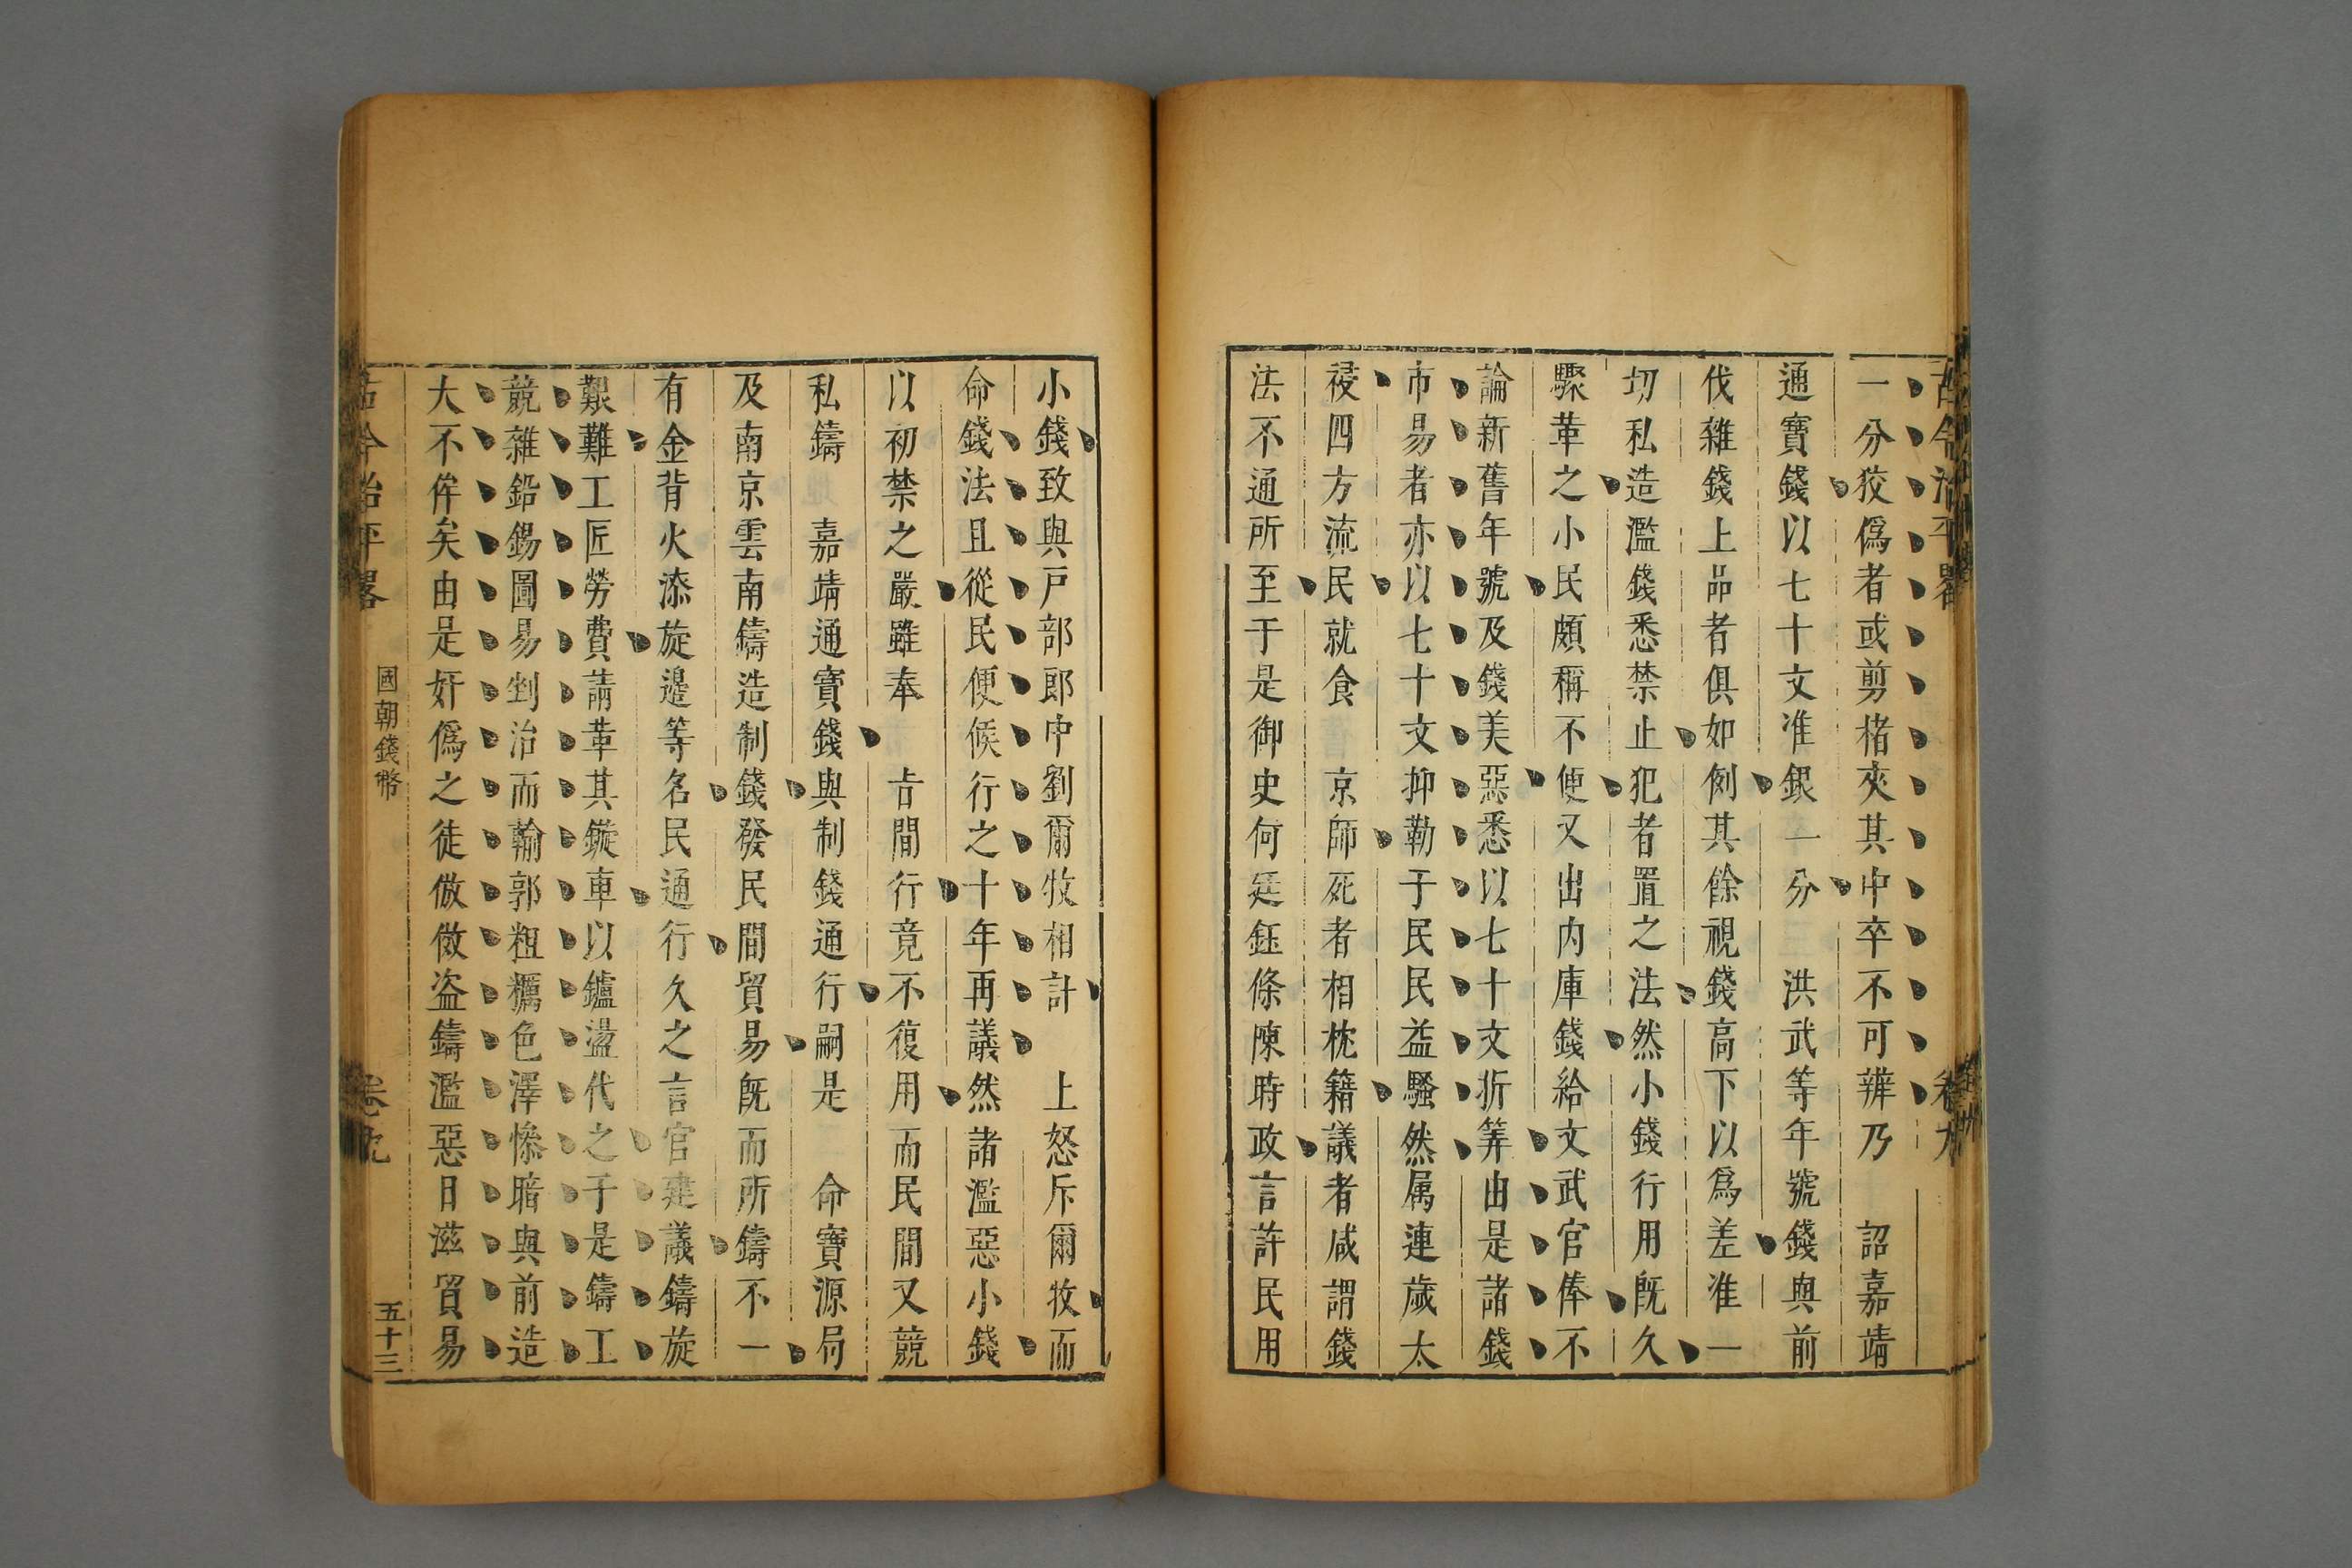 古今治平畧 卷九
一分狡僞者或剪楮夾其中卒不可辨乃 詔嘉靖
通寶錢以七十文准銀一分 洪武等年號錢與前
伐雜錢上品者俱如例其餘視錢高下以爲差准一
切私造濫錢悉禁止犯者置之法然小錢行用旣久
驟革之小民頗稱不便又出内庫錢給文武官俸不
論新舊年號及錢美惡悉以七十文折筭由是諸錢
市易者亦以七十文抑勒于民民益騷然属連歲太
祲四方流民就食 京師死者相枕籍議者咸謂錢
法不通所至于是御史何廷鈺條陳時政言許民用
小錢致與戸部郎中劉爾牧相訐 上怒斥爾牧而
命錢法且從民便候行之十年再議然諸濫惡小錢
以初禁之嚴雖奉 㫖間行竟不復用而民間又競
私鑄 嘉靖通寶錢與制錢通行嗣是 命寶源局
及南京雲南鑄造制錢發民間貿易旣而所鑄不一
有金背火漆旋邊等名民通行久之言官建議鑄旋
艱難工匠勞費請革其鏇車以鑪盪代之于是鑄工
競雜鉛錫圖易剉治而輪郭粗糲色澤慘暗與前造
大不侔矣由是奸僞之徒倣傚盜鑄濫惡日滋貿易
古今治平畧 國朝錢幣 卷九 五十三